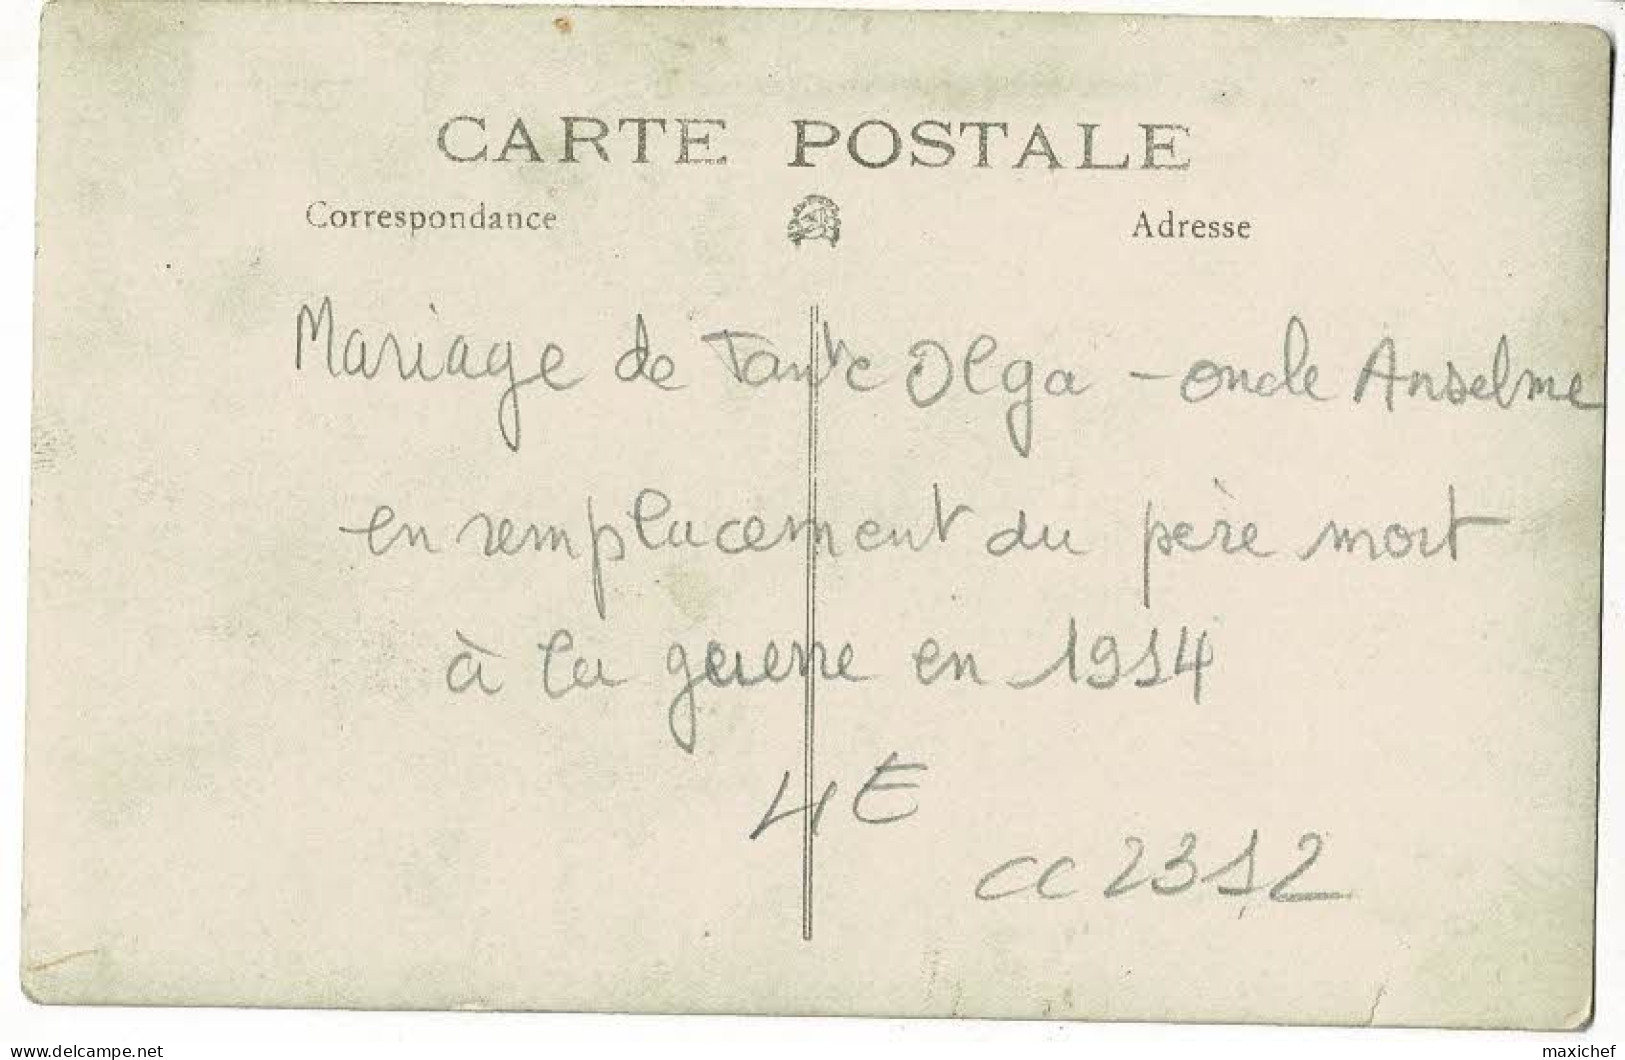 CARTE POSTALE
Correspondance Adresse
Mariage de Tante Olga - oncle Anselme
en remplacement du père mort
à la guerre en 1914
4E
CC 2312
www.delcampe.net maxichef